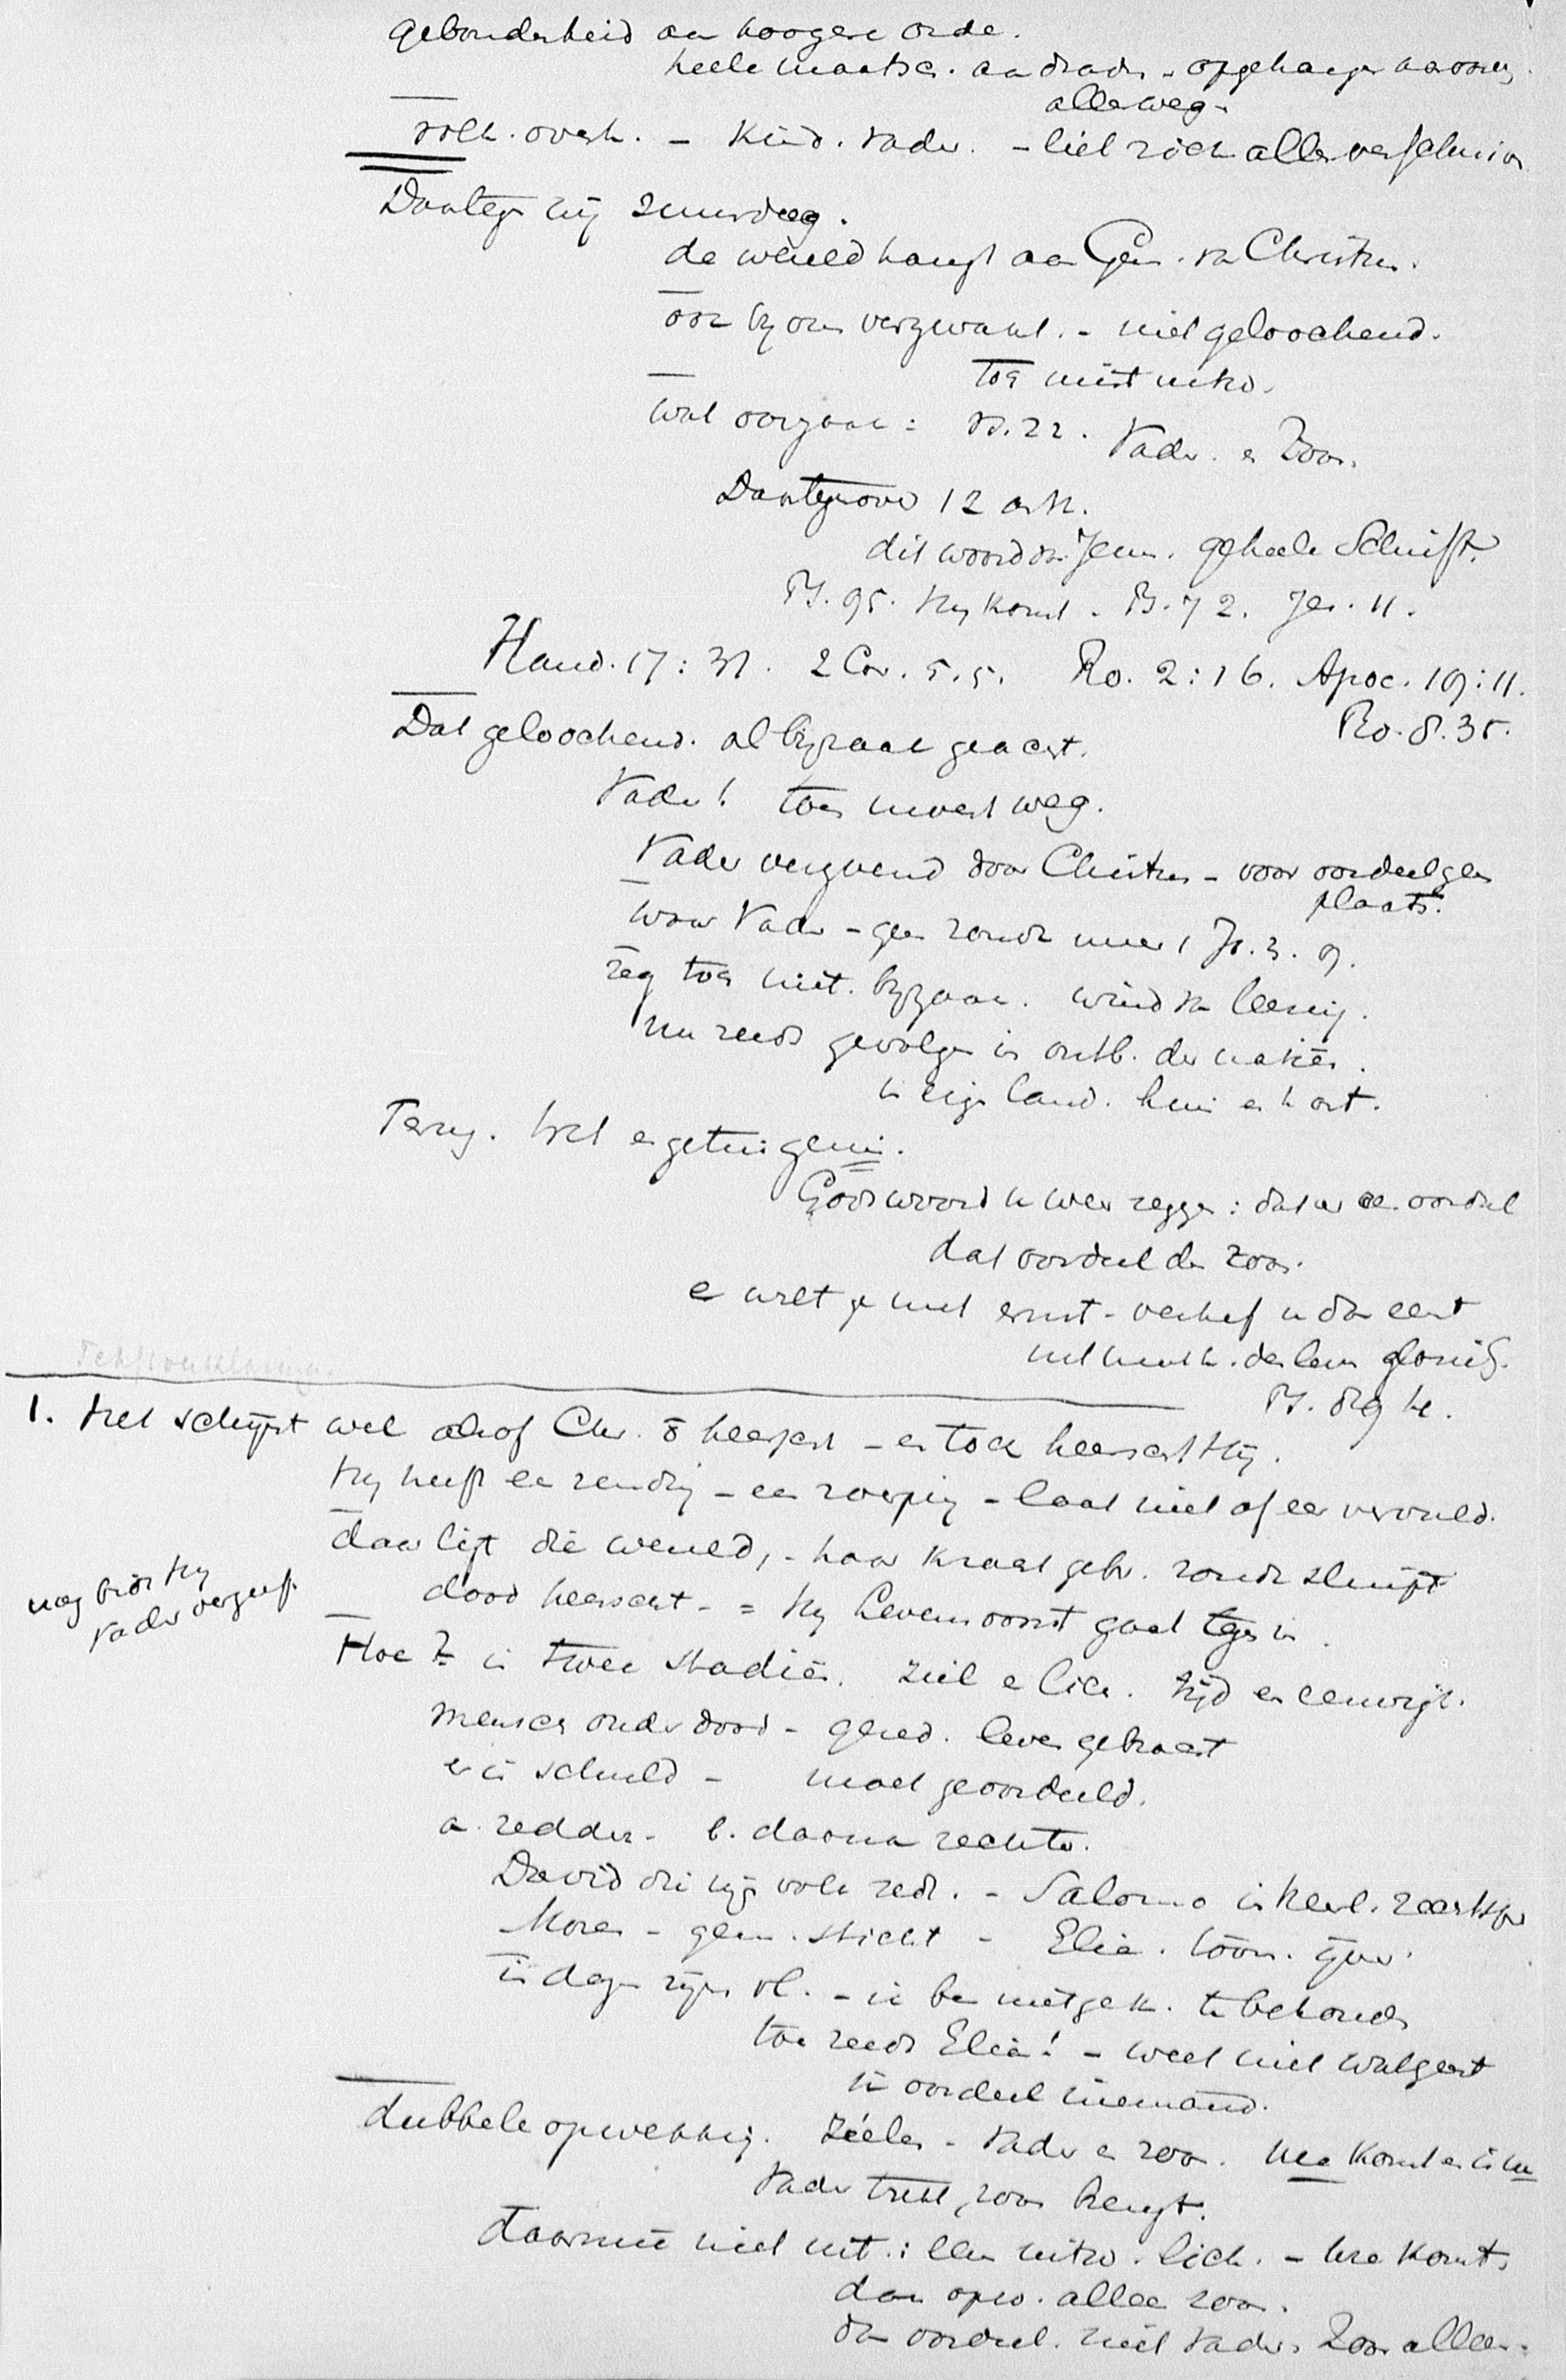 gebondenheid aan hoogere orde.
heele maatsch. aan draden - opgehangen
alles weg -
volk. overh. - kind. vader. - liet zich alles
Daartegen zuurdeeg.
de wereld hangt aan van Christus.
ook bij ons verzwakt. - niet geloochend.
toch niet
wat oorzaak: vs. 22. Vader. en Zoon.
Daartegenover 12 art.
dit woord v. Jezus. geheele Schrift.
Ps. 95. Hij komt. Ps. 72. Jes. 11.
Hand. 17:31. 2 Cor. 5.5. Ro. 2:16. Apoc. 19:11.
Ro. 8.35.
Dat geloochend. als bijzaak geacht.
Vader! toen moest weg.
Vader verzoend door Christus - voor oordeel geen
plaats.
waar Vader - geen zonde meer 1 Jo. 3. 9.
zeg toch niet. bijzaak. wind van leering.
nu reeds gevolgen in ontb. der natiën.
in eigen land. huis en hart.
Terug. wet en getuigenis.
Gods woord u weer zeggen: dat er een oordeel
dat oordeel de Zoon.
en met ernst - verhef u dan eerst
glorie
Ps. 89
1. Het schijnt wel alsof Chr. heerscht - en toch heerscht Hij.
Hij heeft een zending - een roeping - laat niet af eer vervuld.
daar ligt die wereld, - haar kracht gebr. zonde sluipt
dood heerscht - = Hij Levensvorst gaat tegen in.
nog bidt Hij
vader vergeef
Hoe? - in twee stadiën. ziel en lich. tijd en eeuwigh.
mensch onder dood - gered. leven gebracht
er is schuld - moet geoordeeld.
a. redder - b. daarna rechter.
David die zijn volk redt. - Salomo in heerl.
Mozes - gem. sticht - Elia. toorn. ijver.
in dagen zijns vl. - ik ben niet gek. te behouden
toen reeds Elia! - weet niet wat geest
ik oordeel niemand.
dubbele opwekking. Zielen - Vader en zoon. ure komt en is nu
Vader trekt, zoon brengt.
daarmee niet uit: lich. - ure komt,
dan opw. alleen zoon.
dan oordeel. niet Vader, Zoon alleen.